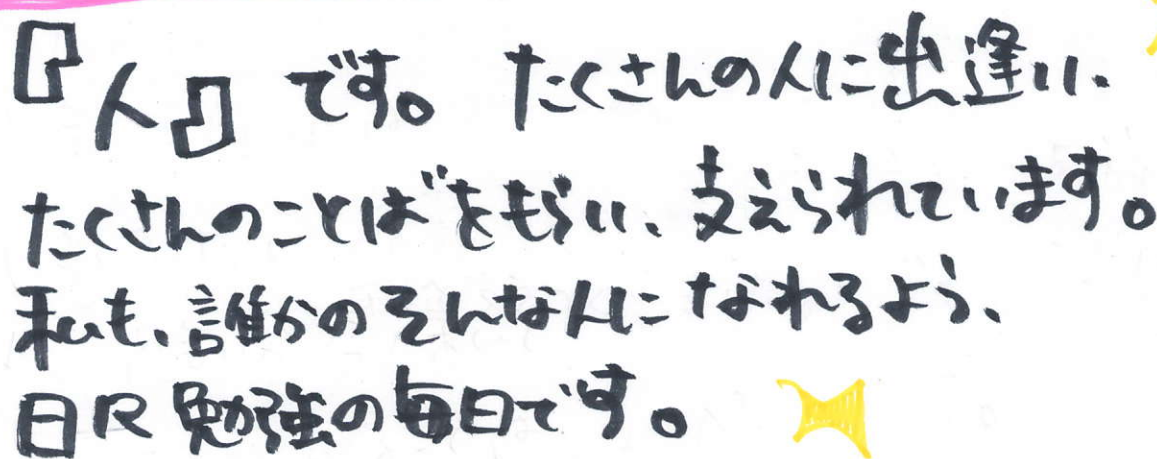 『人』です。たくさんの人に出逢い、
たくさんのことばをもらい、支えられています。
私も、誰かのそんな人になれるよう、
日々勉強の毎日です。